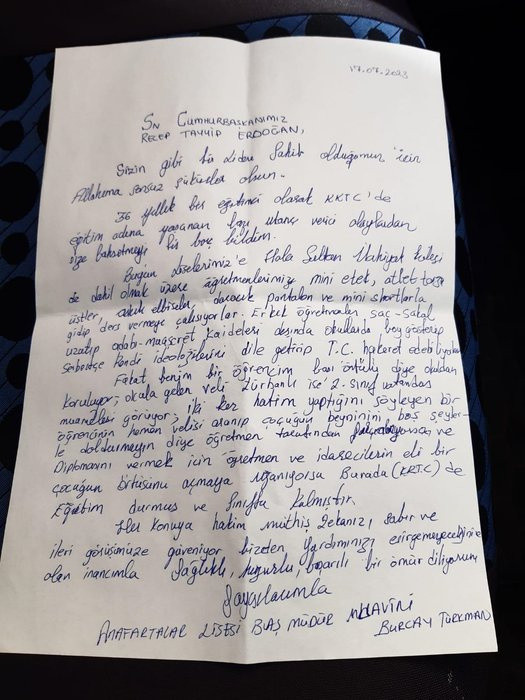 17.07.2023
Sn CUMHURBAŞKANIMIZ
RECEP TAYYİP ERDOĞAN,
Sizin gibi bir lidere sahip olduğumuz için
Allahıma sonsuz şükürler olsun.
36 yıllık bir eğitimci olarak KKTC'de
eğitim adına yaşanan bazı utanç verici olaylardan
size bahsetmeyi bir borç bildim.
Bugün liselerimiz'e Hala Sultan İlahiyat Koleji
de dahil olmak üzere öğretmenlerimiz mini etek, atlet tarzı
üstler, askılı elbiseler, daracık pantolon ve mini shortlarla
gidip ders vermeye çalışıyorlar. Erkek öğretmenler saç-sakal
uzatıp adabı-muaşeret kaideleri dışında okullarda boy gösterip
serbestçe kendi ideolojilerini dile getirip T.C. hakaret edebiliyorken
Fakat benim bir öğrencim başı örtülü diye okuldan
kovuluyor; okula gelen veli türbanlı ise '2. sınıf vatandaş
muamelesi görüyor; iki kez hatim yaptığını söyleyen bir
öğrencinin hemen velisi aranıp çocuğun beynini boş şeyler-
le doldurmayın diye öğretmen tarafından ve
Diplomasını vermek için öğretmen ve idarecilerin eli bir
çocuğun örtüsünü açmaya uzanıyorsa Burada (KKTC) de
Eğitim durmuş ve Sınıfta kalmıştır.
Her konuya hakim müthiş zekanızı sabır ve
ileri görüşünüze güveniyor bizden yardımınızı esirgemeyeceğinize
olan inancımla Sağlıklı, huzurlu, başarılı bir ömür diliyorum
Saygılarımla
ANAFARTALAR LİSESİ BAŞ MÜDÜR MUAVİNİ
BURCAY TÜRKMAN